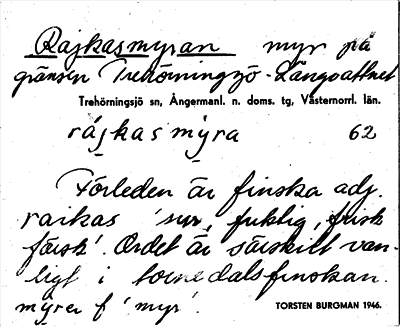 Rajkasmyran myr på
gränsen Trehörningsjö - Långvattnet
Trehörningsjö sn, Ångermanl. n. doms. tg, Västernorrl. län.
rájkasmýra 62
Förleden är finska adj.
raikas 'sur, fuktig, frisk
färsk'. Ordet är särskilt van-
ligt i tornedalsfinskan.
mýrer f 'myr'.
TORSTEN BURGMAN 1946.